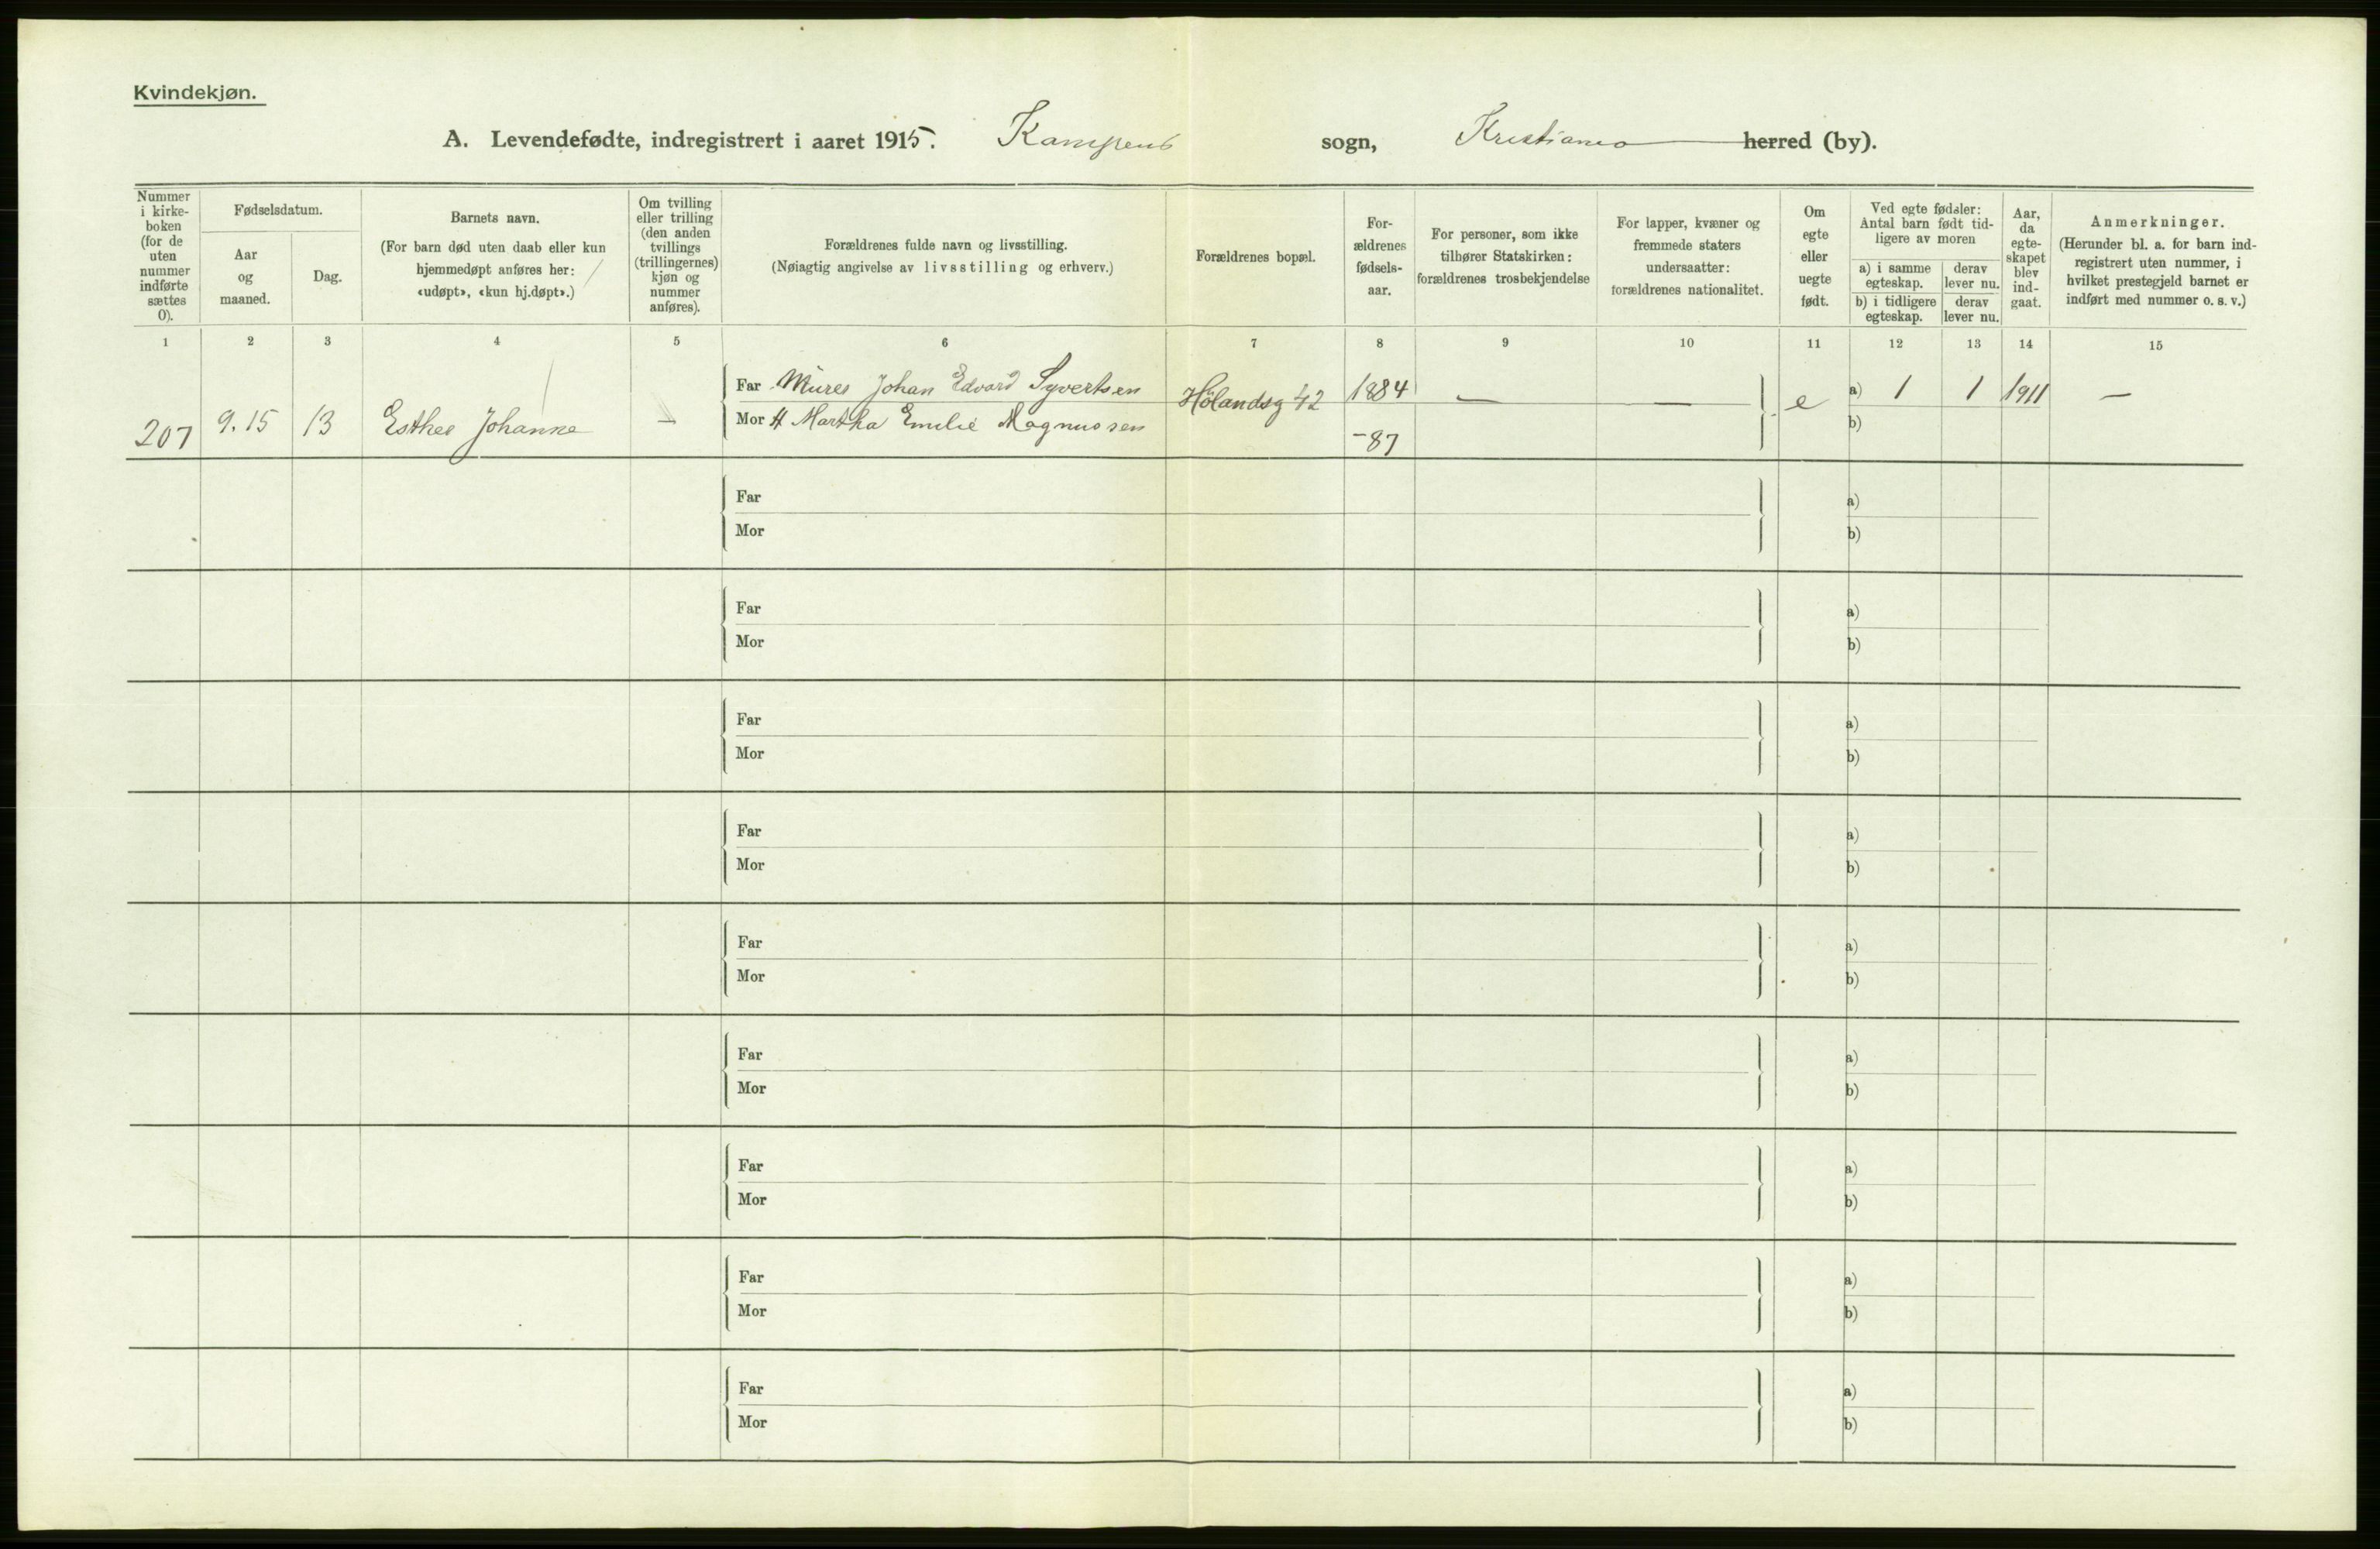 Kvindekjøn.
A. Levendefødte, indregistrert i aaret 1915. Kampens sogn, Kristiania herred (by).
Nummer i kirke-boken (for de uten nummer indførte sættes 0).
Fødselsdatum.
Aar og maaned.
Dag.
Barnets navn.
(For barn død uten daab eller kun hjemmedøpt anføres her: «udøpt», «kun hj.døpt».)
Om tvilling eller trilling (den anden tvillings (trillingernes) kjøn og nummer anføres).
Forældrenes fulde navn og livsstilling.
(Nøiagtig angivelse av livsstilling og erhverv.)
Forældrenes bopæl.
For-ældrenes fødsels-aar.
For personer, som ikke tilhører Statskirken: forældrenes trosbekjendelse
For lapper, kvæner og fremmede staters undersaatter: forældrenes nationalitet.
Om egte eller uegte født.
Ved egte fødsler: Antal barn født tid-ligere av moren
a) i samme egteskap.
derav lever nu.
b) i tidligere egteskap.
derav lever nu.
Aar, da egte-skapet blev ind-gaat.
Anmerkninger.
(Herunder bl. a. for barn ind-registrert uten nummer, i hvilket prestegjeld barnet er indført med nummer o. s. v.)
1 2 3 4 5 6 7 8 9 10 11 12 13 14 15
Far Murer Johan Edvard Syvertsen Hölandsg 42 1884 — — e a) 1 1 1911 —
207 9.15 13 Esther Johanne — Mor H Martha Emilie Magnussen -87 b)
Far a)
Mor b)
Far a)
Mor b)
Far a)
Mor b)
Far a)
Mor b)
Far a)
Mor b)
Far a)
Mor b)
Far a)
Mor b)
Far a)
Mor b)
Far a)
Mor b)